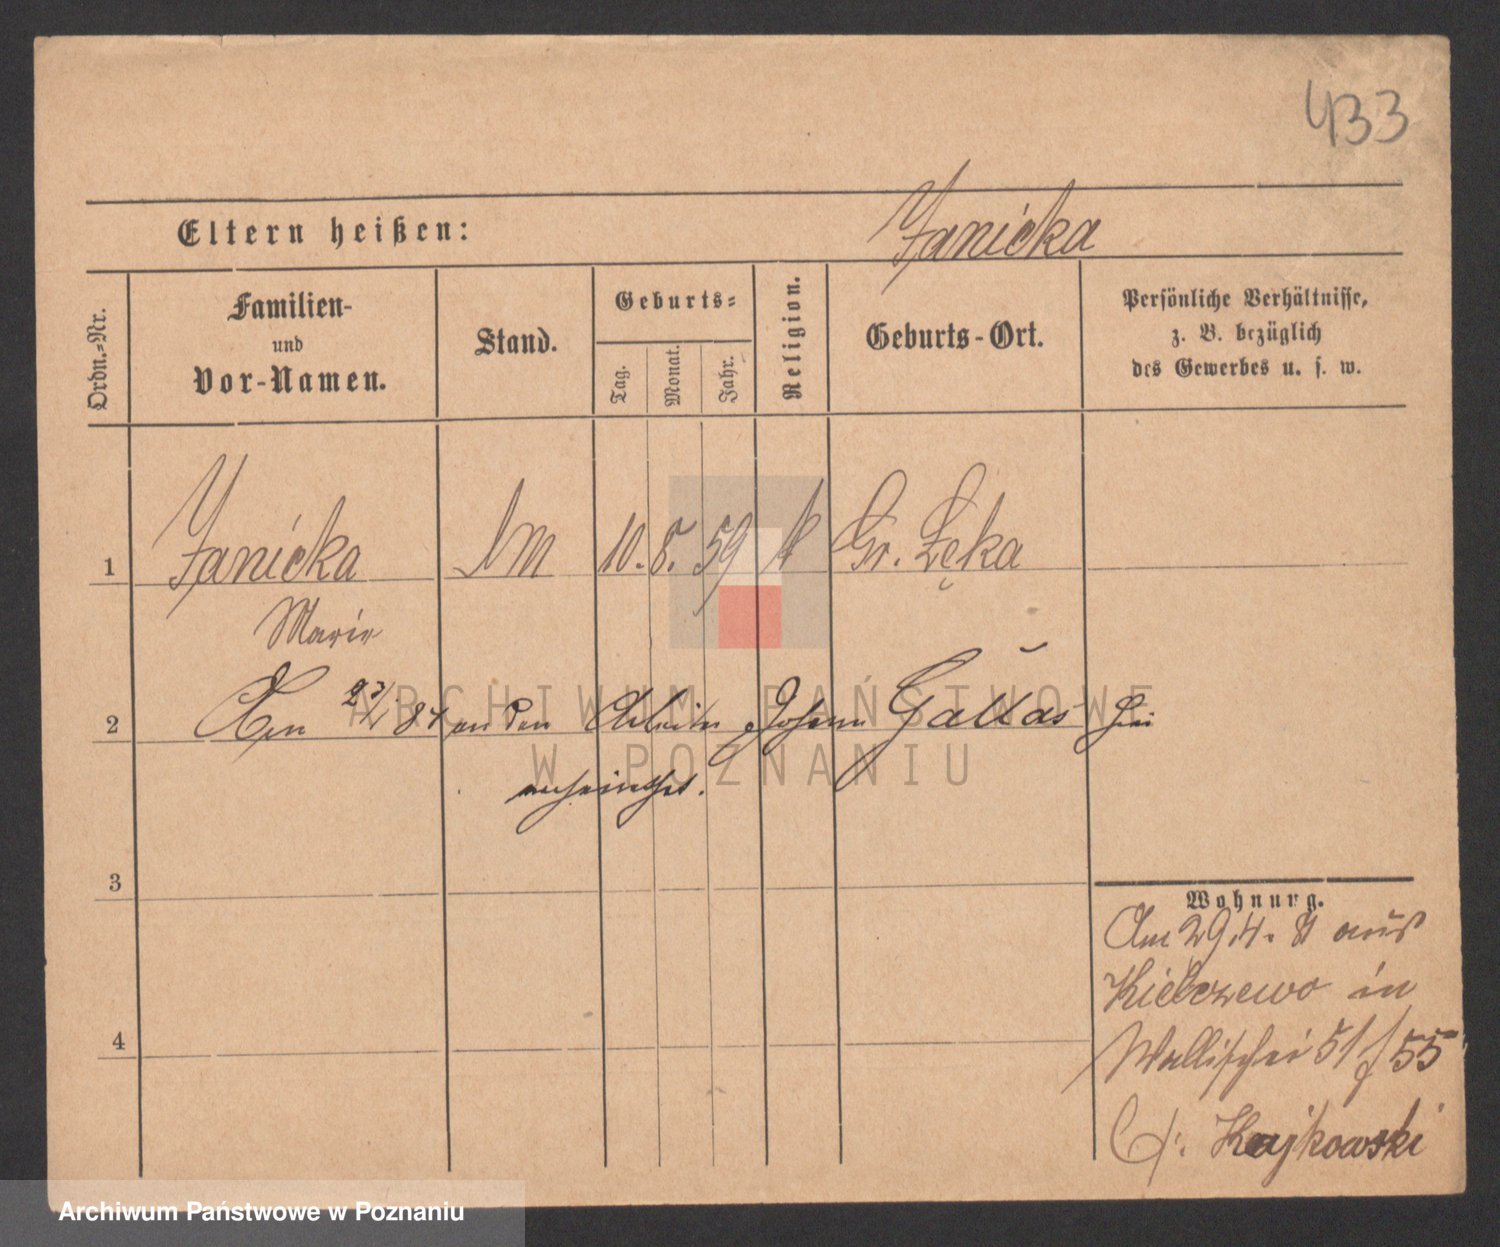 433
Eltern heißen: Janicka
Ordn.-Nr.
Familien- und Vor-Namen.
Stand.
Geburts-
Tag. Monat. Jahr.
Religion.
Geburts-Ort.
Persönliche Verhältnisse, z. B. bezüglich des Gewerbes u. s. w.
1 Janicka 10. 8. 59 k Gr. Łęka
Marie
2 Am 23/1 84 an den Arbeiter Johann Gallas hier
verheirathet.
3
4
Wohnung.
Am 29.4. 81 aus
Kielczewo in
Wallischei 51/55
b. Kajkowski
ARCHIWUM PAŃSTWOWE
W POZNANIU
Archiwum Państwowe w Poznaniu